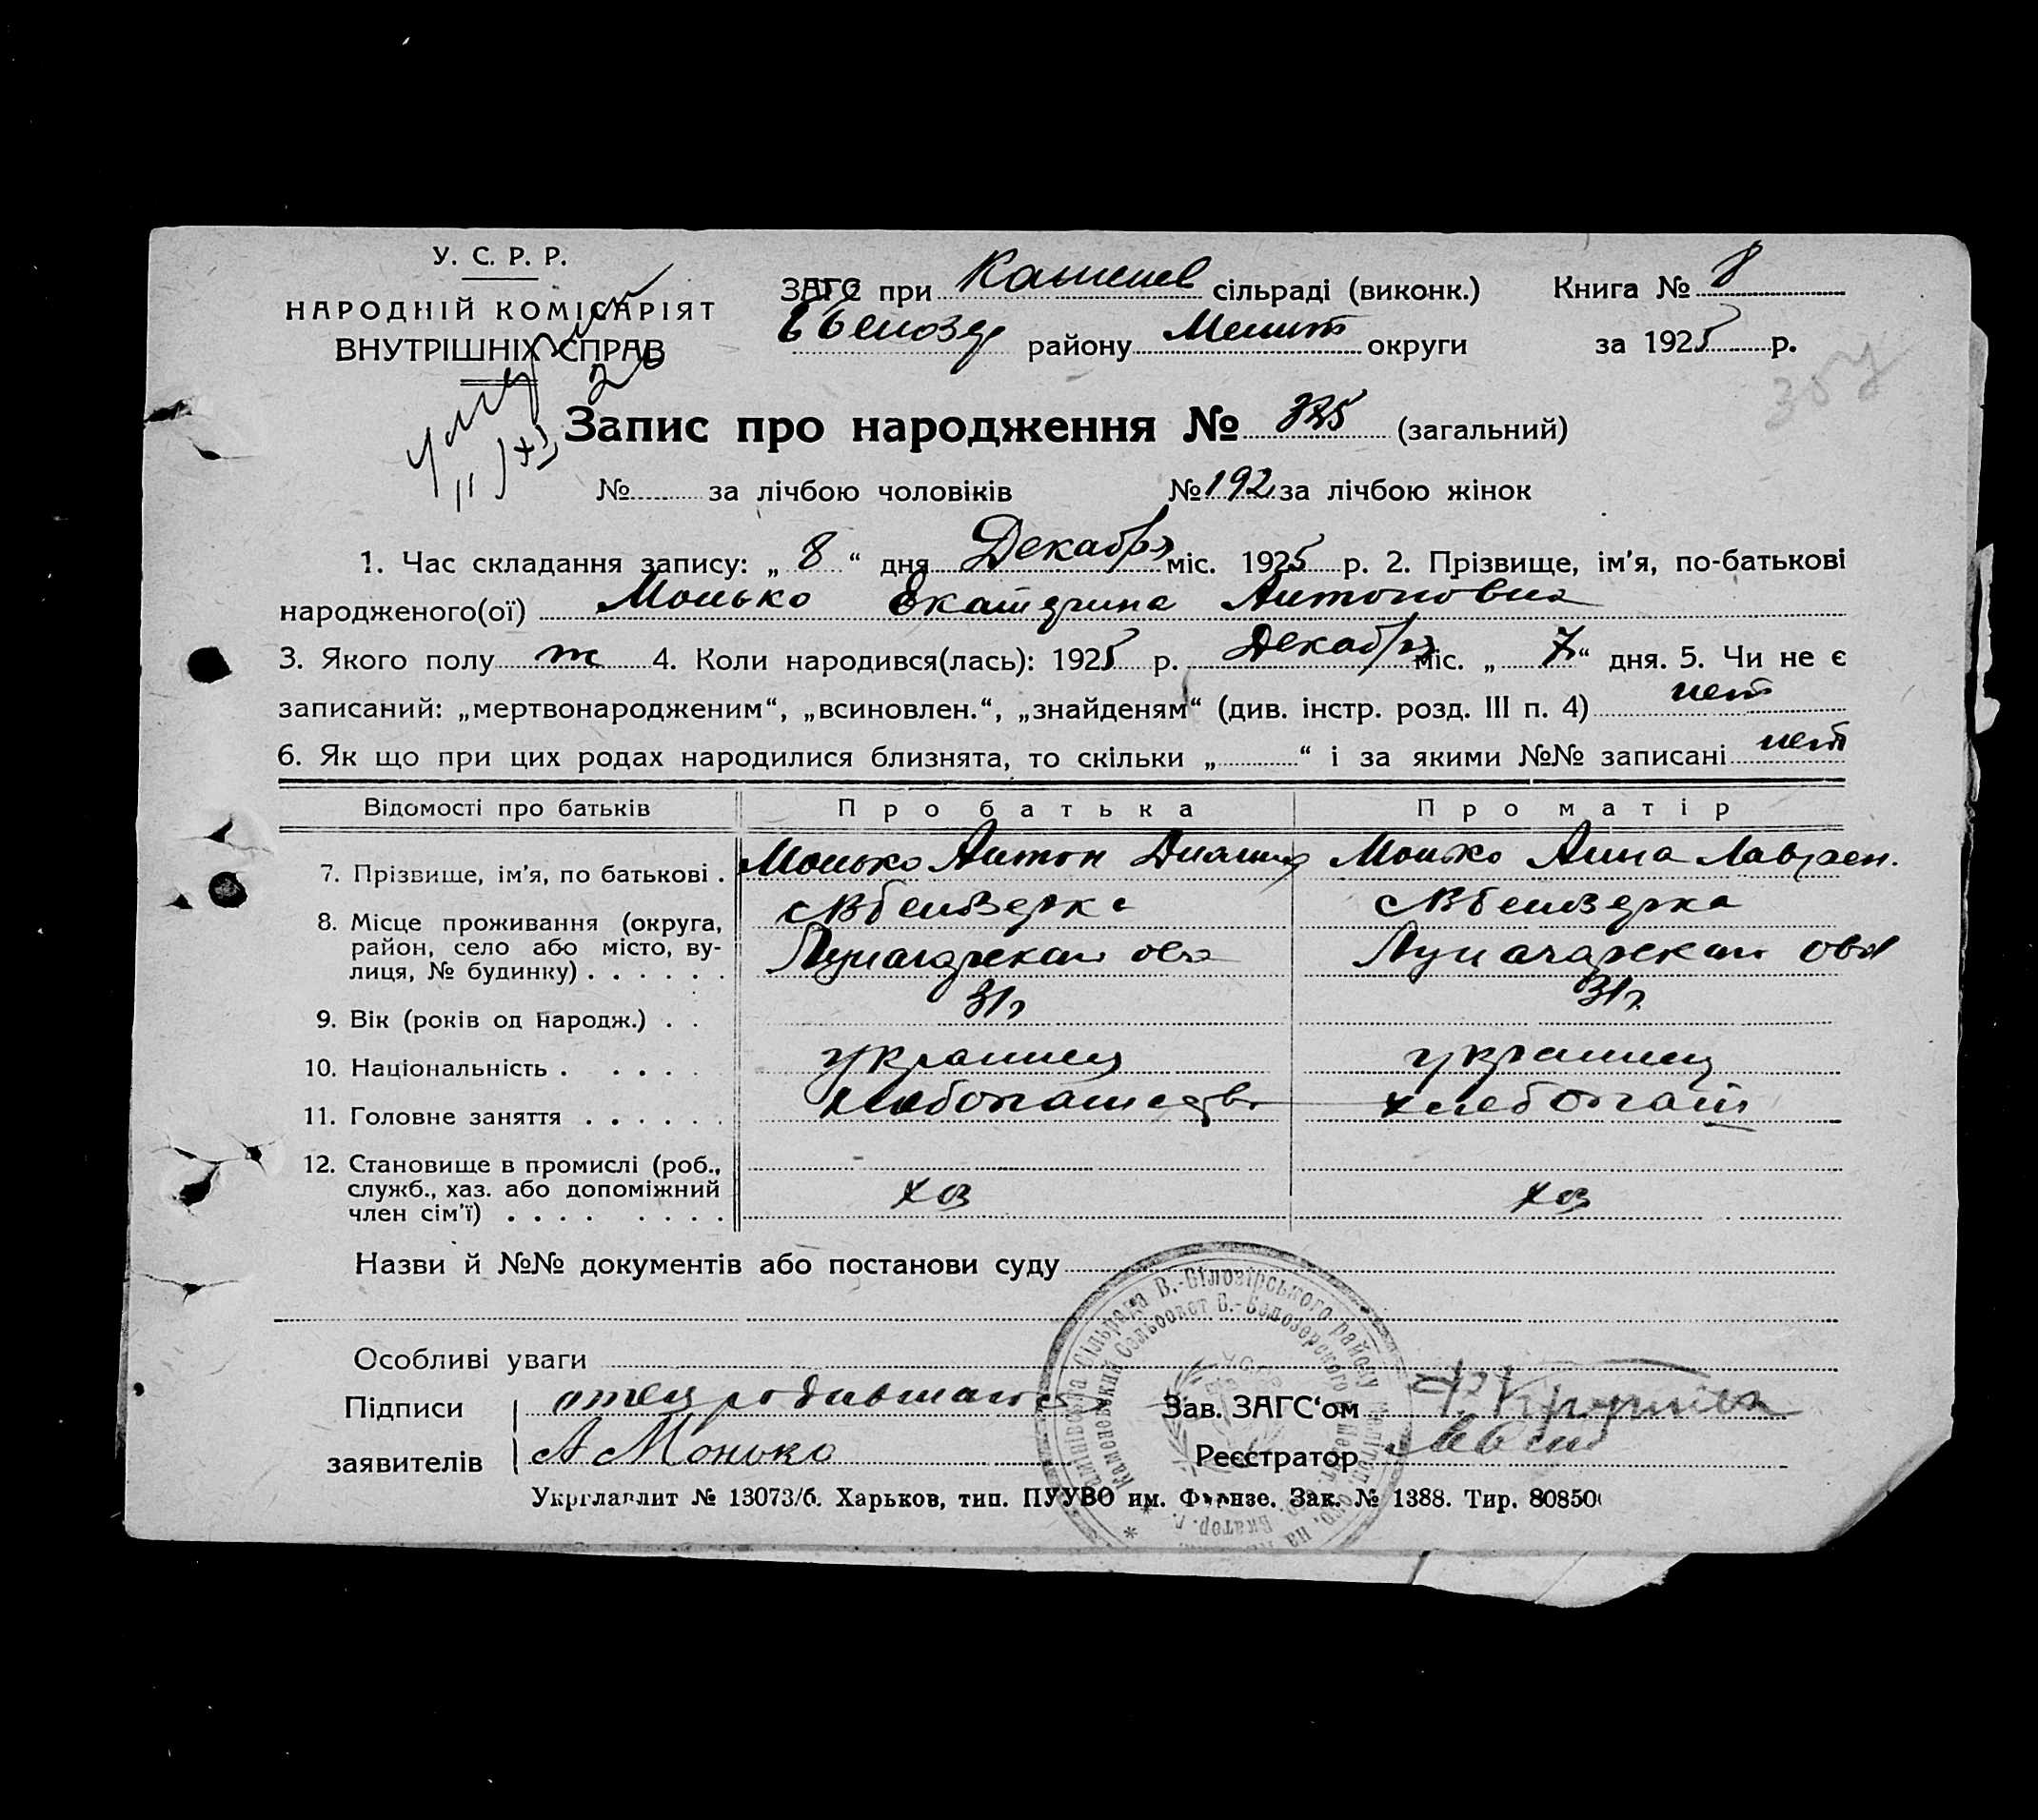 У. С. Р. Р.
НАРОДНІЙ КОМІСАРІЯТ
ВНУТРІШНІХ СПРАВ
ЗАГС при Каменев сільраді (виконк.) Книга № 8
району Мелит округи за 1925 р.
Запис про народження № 325 (загальний)
№ за лічбою чоловіків № 192 за лічбою жінок
1. Час складання запису: „ 8 “ дня Декабря міс. 1925 р. 2. Прізвище, ім’я, по-батькові
народженого(ої) Монько Екатерина Антоновна
3. Якого полу ж 4. Коли народився(лась): 1925 р. Декабря міс. „ 7 “ дня. 5. Чи не є
записаний: „мертвонародженим“, „всиновлен.“, „знайденям“ (див. інстр. розд. III п. 4) нет
6. Як що при цих родах народилися близнята, то скільки „ “ і за якими №№ записані нет
Відомості про батьків Про батька Про матір
7. Прізвище, ім’я, по батькові . Монько Антон Монько Анна Лаврен.
8. Місце проживання (округа,
район, село або місто, ву-
лиця, № будинку) . . . . . .
9. Вік (років од народж.) . . 31г 31г.
10. Національність . . . . . украинец украинец
11. Головне заняття . . . . . . хлебопашество хлебопаш
12. Становище в промислі (роб.,
служб., хаз. або допоміжний
член сім’ї) . . . . . . . . хоз хоз
Назви й №№ документів або постанови суду
Особливі уваги
Підписи отец родившаюся Зав. ЗАГС‘ом
заявителів А Монько Реєстратор
Укрглавлит № 13073/б. Харьков, тип. ПУУВО им. Фрунзе. Зак. № 1388. Тир. 80850